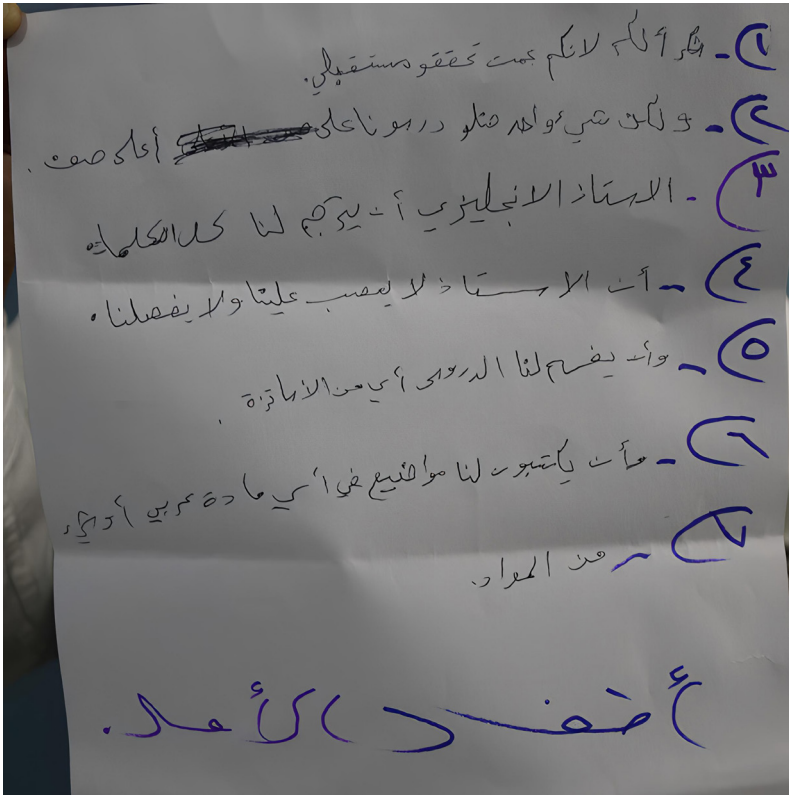 ١- شكر ألكم لانكم عمت تحققو مستقبلي.
٢- ولكن شيء واحد ضلو درسونا على أعلى صف.
٣- الاستاذ الانجليزي أن يترجم لنا كل الكلمات.
٤- أن الاستاذ لا يعصب علينا ولا يفصلنا.
٥- وأن يفسر لنا الدروس أي من الأساتذة.
٦- وأن يكتبون لنا مواضيع في أي مادة عربي أو شيء
٧- من المواد.
الأمل.